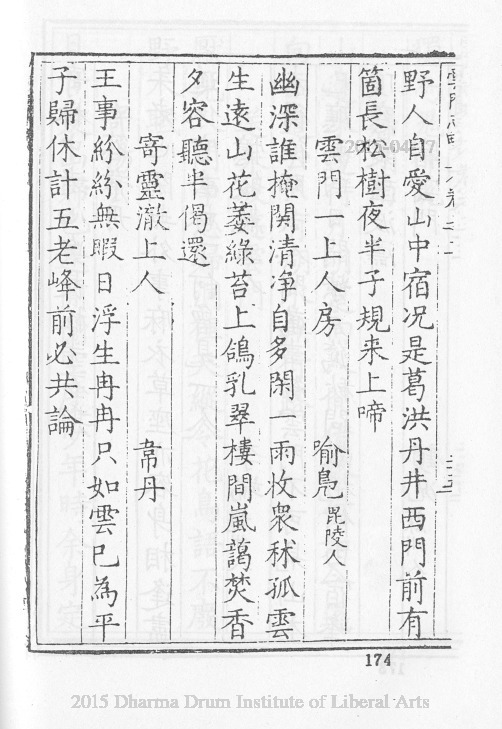 野人自愛山中宿况是葛洪丹井西門前有
箇長松樹夜半子規来上啼
雲門一上人房 喻鳧 毘陵人
幽深誰掩関清净自多閑一雨收衆秋孤雲
生遠山花萎綠苔上鴿乳翠樓間嵐藹焚香
夕容聽半偈還
寄靈澈上人 韋丹
王事紛紛無暇日浮生冉冉只如雲已為平
子歸休計五老峰前必共論
174
2015 Dharma Drum Institute of Liberal Arts